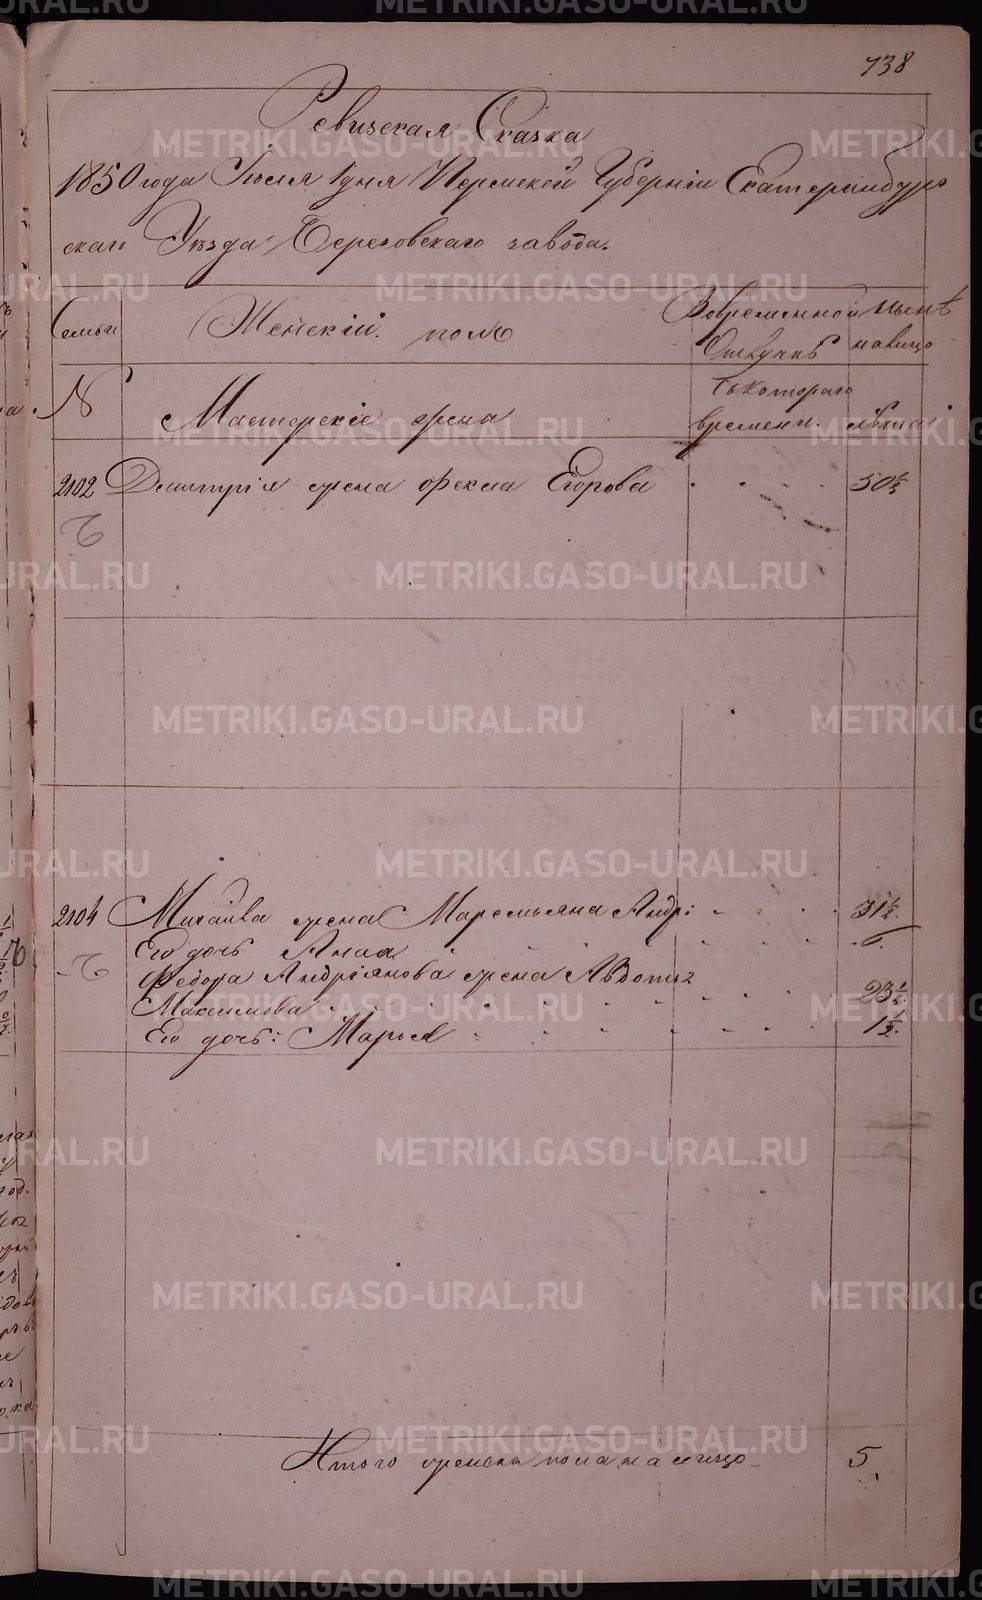 738
Ревизская Сказка
1850 года Июля 1 дня Пермской Губернiи Екатеринбург
скаго Уезда Березовскаго завода.
Семьи Женскiй полъ Вовременной ныне
Отлучке налицо
N Мастерскiе жена
съкотораго
времени. лета
2102 Дмитрiя жена Фекла Егорова 50 1/2
2104 Михайла жена Маремьяна Андр: 31 1/2.
Его дочь Анна 6.
Федора Андрiянова жена Авдотья
Максимова 23 1/2
Его дочь: Марья 1 1/2.
Итого женска пола на лицо 5.
METRIKI.GASO-URAL.RU